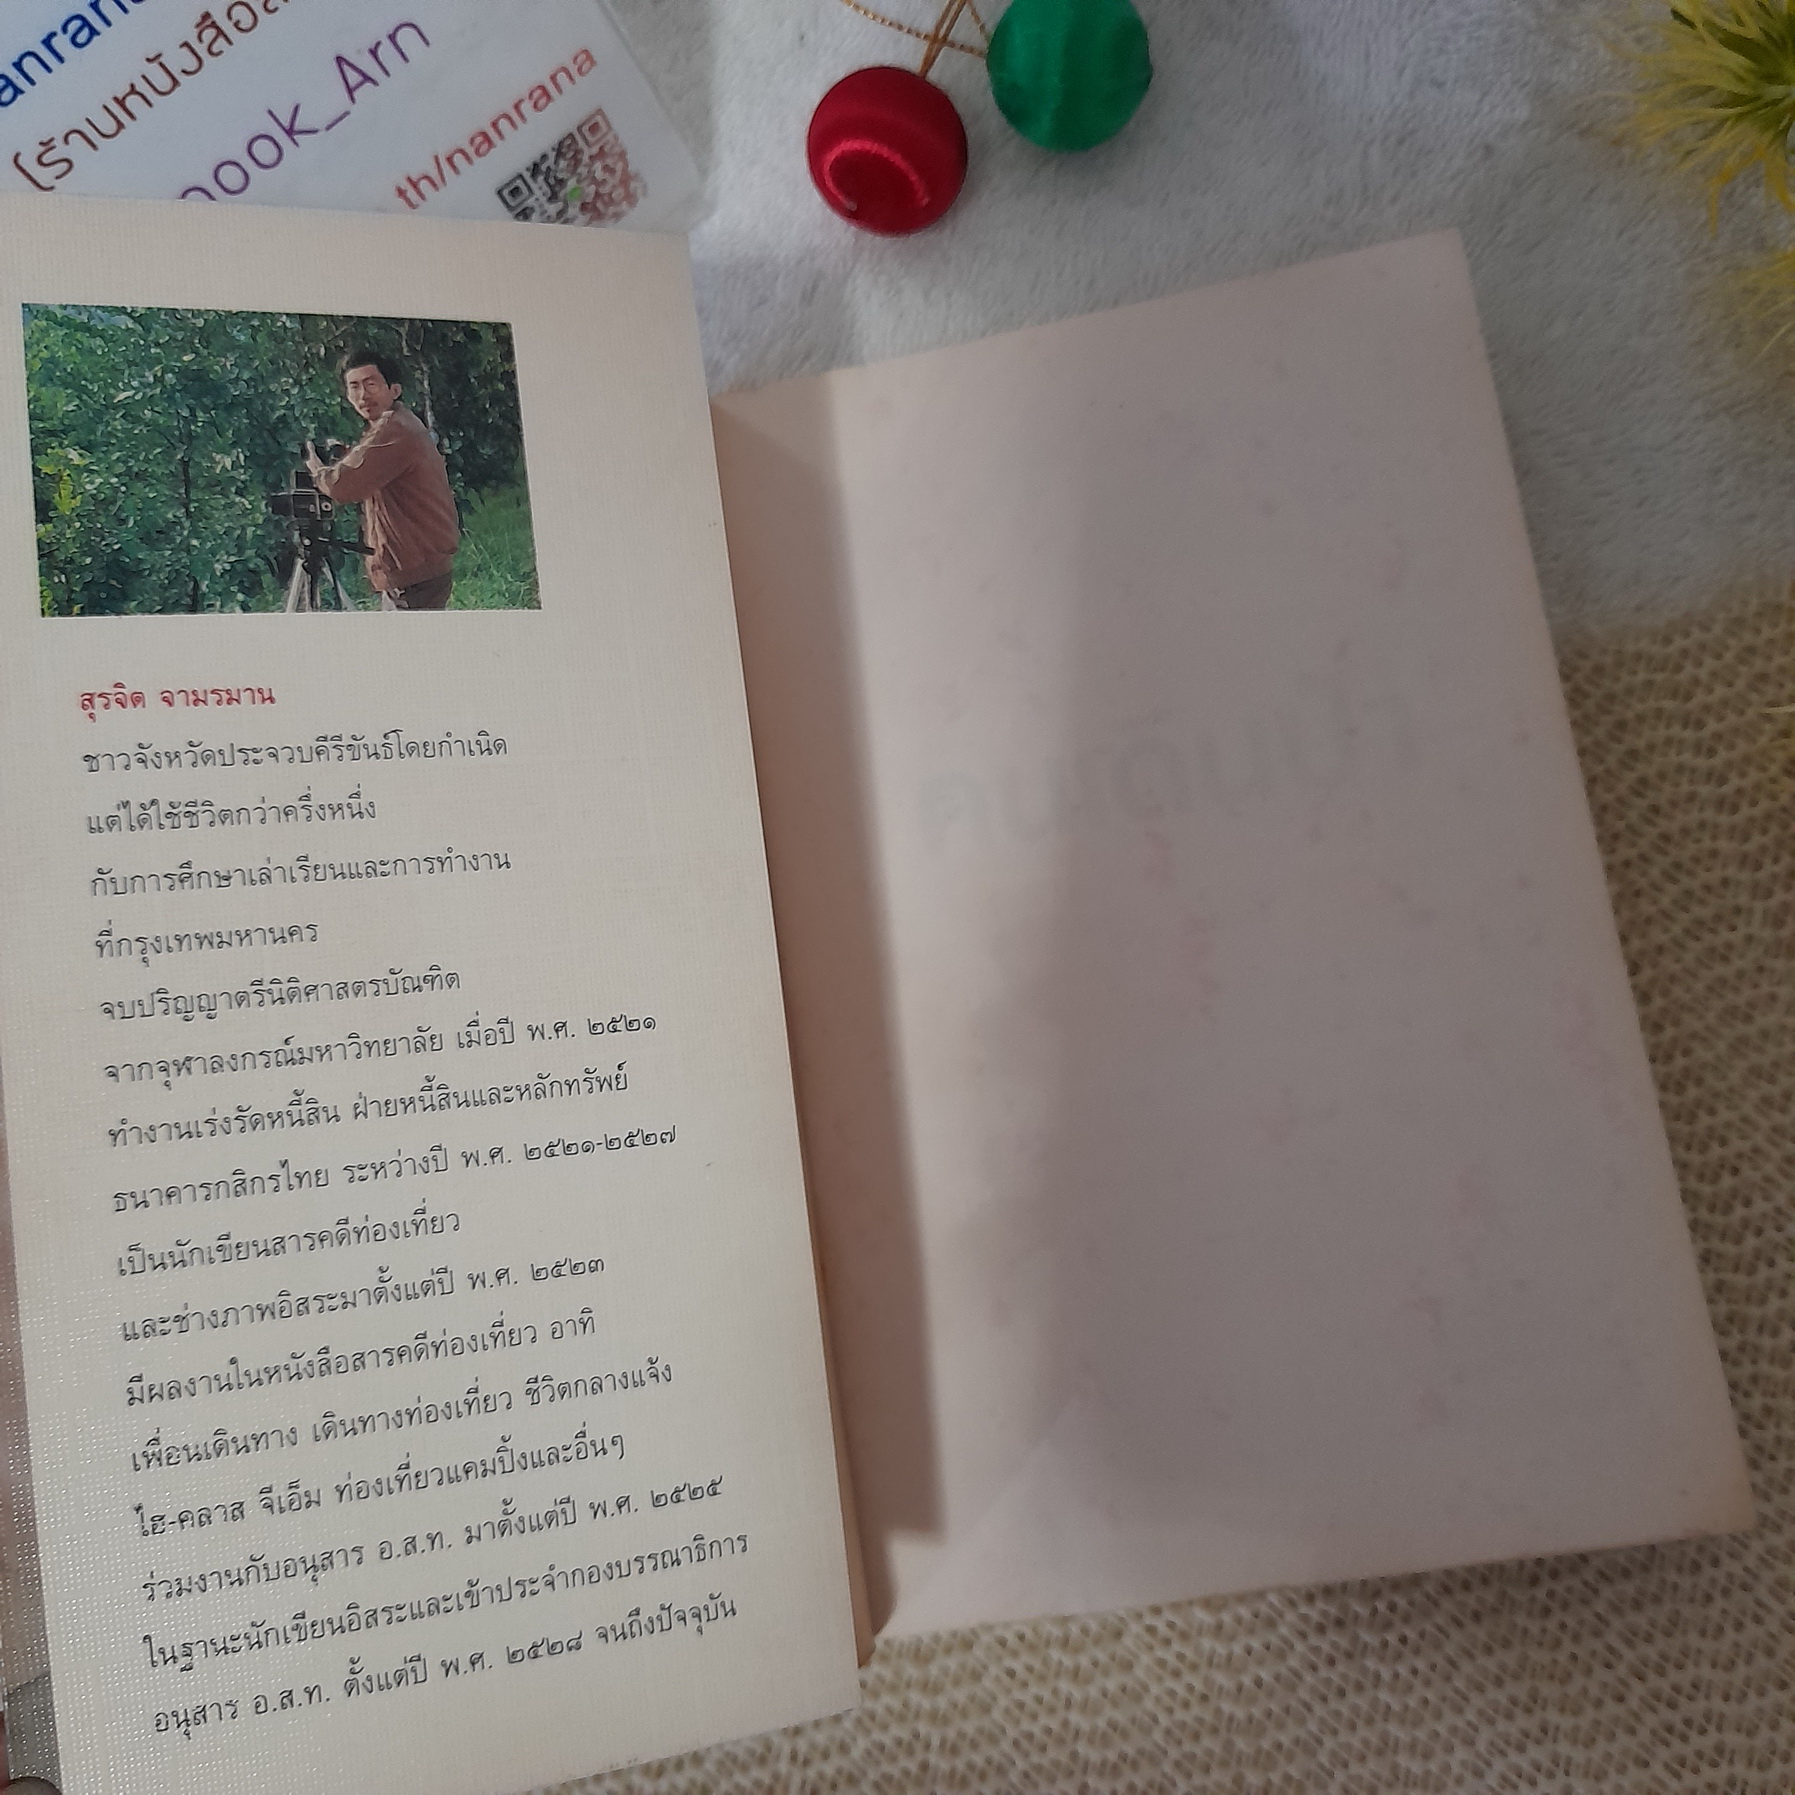 anrana
(ร้านหนังสือ
ook_Arn
th/nanrana
สุรจิต จามรมาน
ชาวจังหวัดประจวบคีรีขันธ์โดยกำเนิด
แต่ได้ใช้ชีวิตกว่าครึ่งหนึ่ง
กับการศึกษาเล่าเรียนและการทำงาน
ที่กรุงเทพมหานคร
จบปริญญาตรีนิติศาสตรบัณฑิต
จากจุฬาลงกรณ์มหาวิทยาลัย เมื่อปี พ.ศ. ๒๕๒๑
ทำงานเร่งรัดหนี้สิน ฝ่ายหนี้สินและหลักทรัพย์
ธนาคารกสิกรไทย ระหว่างปี พ.ศ. ๒๕๒๑-๒๕๒๗
เป็นนักเขียนสารคดีท่องเที่ยว
และช่างภาพอิสระมาตั้งแต่ปี พ.ศ. ๒๕๒๓
มีผลงานในหนังสือสารคดีท่องเที่ยว อาทิ
เพื่อนเดินทาง เดินทางท่องเที่ยว ชีวิตกลางแจ้ง
ไฮ-คลาส จีเอ็ม ท่องเที่ยวแคมปิ้งและอื่นๆ
ร่วมงานกับอนุสาร อ.ส.ท. มาตั้งแต่ปี พ.ศ. ๒๕๒๕
ในฐานะนักเขียนอิสระและเข้าประจำกองบรรณาธิการ
อนุสาร อ.ส.ท. ตั้งแต่ปี พ.ศ. ๒๕๒๘ จนถึงปัจจุบัน